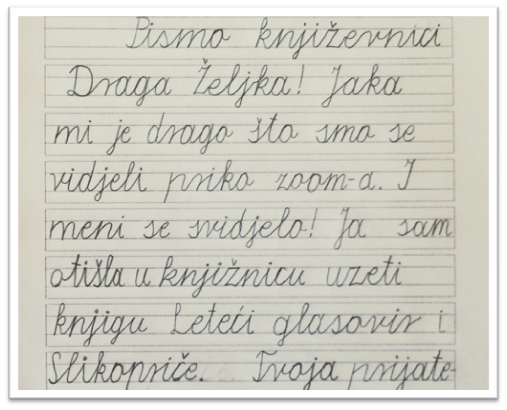 Pismo književnici
Draga Željka! Jaka
mi je drago što smo se
vidjeli priko zoom-a. I
meni se svidjelo! Ja sam
otišla u knjižnicu uzeti
knjigu Leteći glasovir i
Slikopriče. Tvoja prijate-